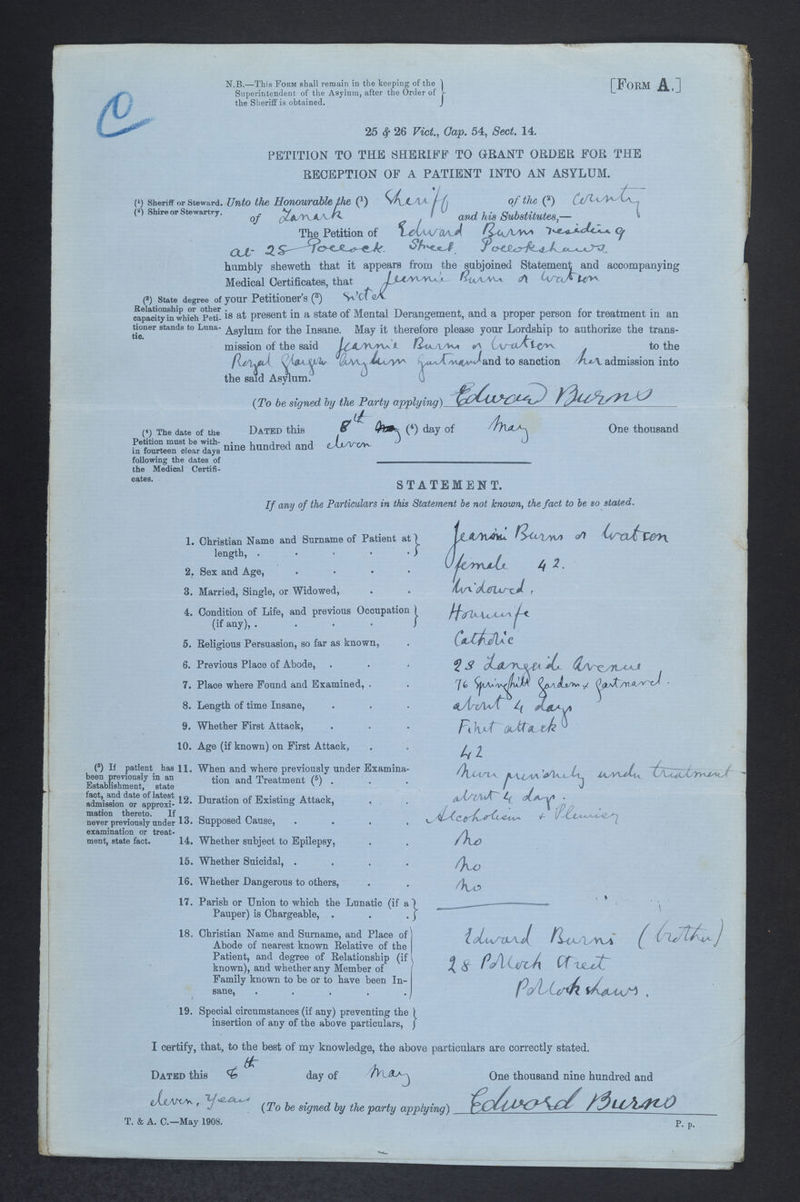 C
N.B.—This Form shall remain in the keeping of the
Superintendent of the Asylum, after the Order of
the Sheriff is obtained.
[Form A.]
25 & 26 Vict., Cap. 54, Sect. 14.
PETITION TO THE SHERIFF TO GRANT ORDER FOR THE
RECEPTION OF A PATIENT INTO AN ASYLUM.
(1) Sheriff or Steward.
(2) Shire or Stewartry.
Unto the Honourable the (1) Sheriff of the (2) County
of Lanark and his Substitutes,—
The Petition of Edward Burns residing
at 28 Pollock Street Pollokshaws
humbly sheweth that it appears from the subjoined Statement and accompanying
Medical Certificates, that Jeannie Burns or Watson
(3) State degree of
Relationship or other
capacity in which Peti-
tioner stands to Luna-
tic.
your Petitioner's (3) Sister
is at present in a state of Mental Derangement, and a proper person for treatment in an
Asylum for the Insane. May it therefore please your Lordship to authorize the trans-
mission of the said Jeannie Burns or Watson to the
Royal Glasgow Asylum Gartnavel and to sanction her admission into
the said Asylum.
(To be signed by the Party applying) Edward Burns
(4) The date of the
Petition must be with-
in fourteen clear days
following the dates of
the Medical Certifi-
cates.
Dated this 8th May (4) day of May One thousand
nine hundred and eleven
STATEMENT.
If any of the Particulars in this Statement be not known, the fact to be so stated.
1. Christian Name and Surname of Patient at
length, . Jeannie Burns or Watson
2. Sex and Age, female 42.
3. Married, Single, or Widowed, Widowed.
4. Condition of Life, and previous Occupation
(if any), . Housewife
5. Religious Persuasion, so far as known, Catholic
6. Previous Place of Abode, 28 Langside Avenue
7. Place where Found and Examined, . 76 Springhill Gardens & Gartnavel.
8. Length of time Insane, about 4 days
9. Whether First Attack, First attack
10. Age (if known) on First Attack, 42
(5) If patient has
been previously in an
Establishment, state
fact, and date of latest
admission or approxi-
mation thereto. If
never previously under
examination or treat-
ment, state fact.
11. When and where previously under Examina-
tion and Treatment (5) . Never previously under treatment
12. Duration of Existing Attack, about 4 days.
13. Supposed Cause, Alcoholism + Pleurisy
14. Whether subject to Epilepsy, No
15. Whether Suicidal, . No
16. Whether Dangerous to others, No
17. Parish or Union to which the Lunatic (if a
Pauper) is Chargeable, .
18. Christian Name and Surname, and Place of
Abode of nearest known Relative of the
Patient, and degree of Relationship (if
known), and whether any Member of
Family known to be or to have been In-
sane,
Edward Burns (brother)
28 Pollock Street
Pollockshaws.
19. Special circumstances (if any) preventing the
insertion of any of the above particulars,
I certify, that, to the best of my knowledge, the above particulars are correctly stated.
Dated this 8th day of May One thousand nine hundred and
eleven, years (To be signed by the party applying) Edward Burns
T. & A. C.—May 1908.
P. p.